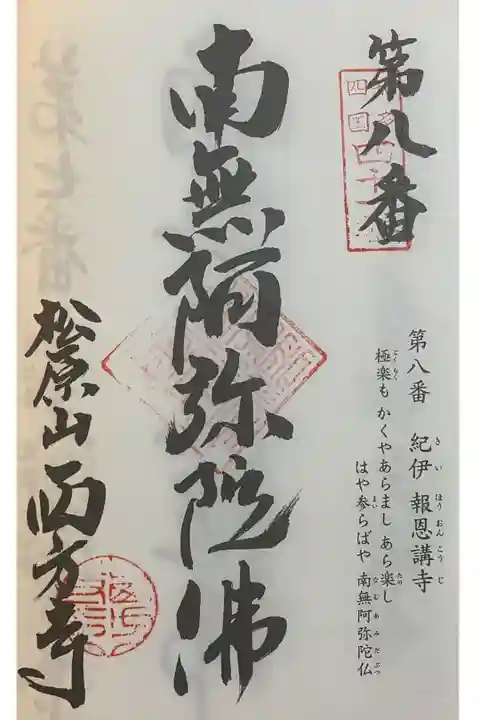 第八番
第八番 紀伊 報恩講寺
極楽も かくやあらまし あら楽し
はや参らばや 南無阿弥陀仏
南無阿弥陀佛
松原山 西方寺